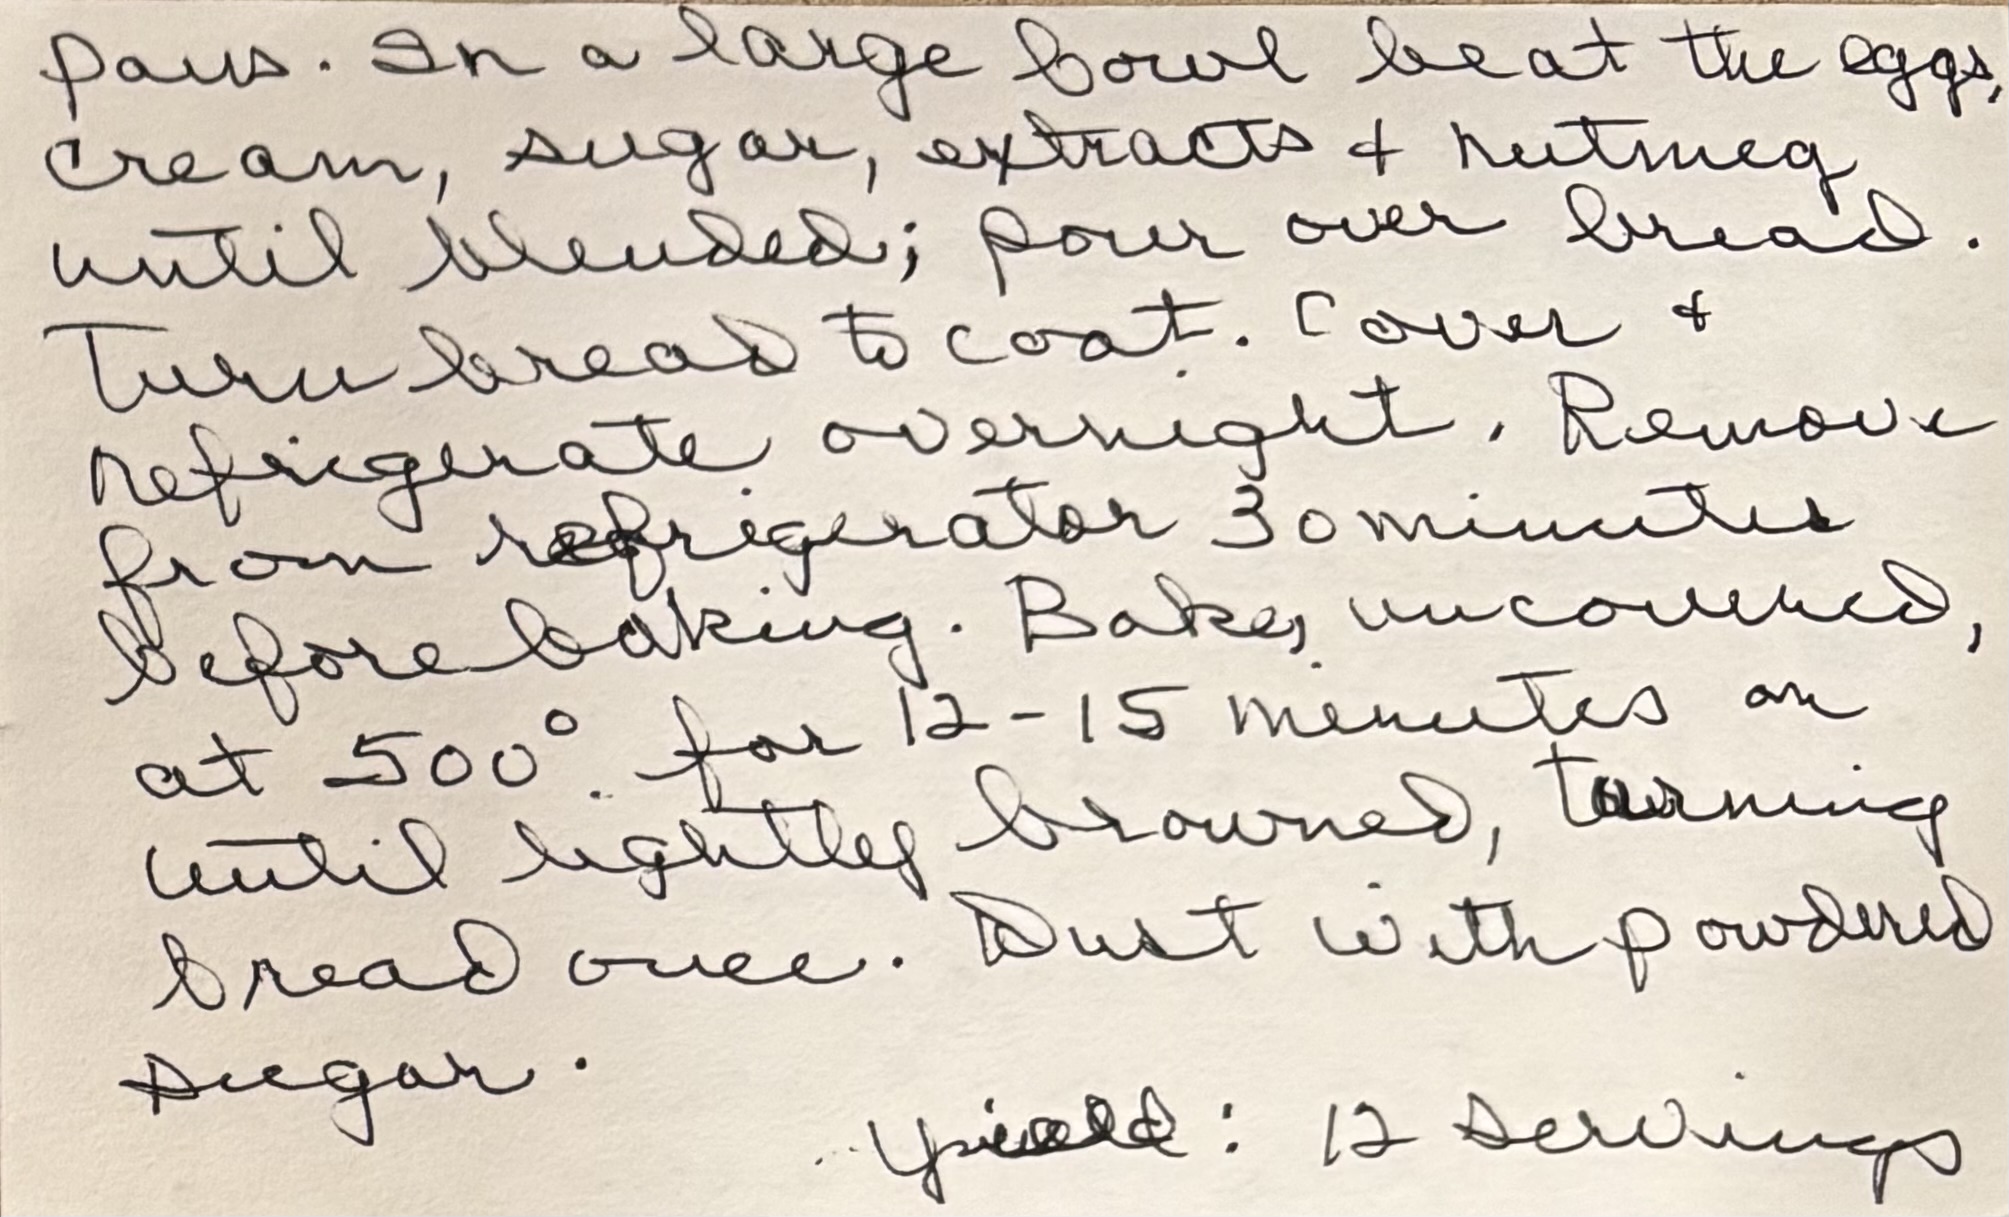 pans. In a large bowl beat the eggs,
cream, sugar, extracts & nutmeg
until blended; pour over bread.
Turn bread to coat. Cover &
refrigerate overnight. Remove
from refrigerator 30 minutes
before baking. Bake, uncovered,
at 500° for 12-15 minutes or
until lightly browned, turning
bread once. Dust with powdered
sugar.
Yield: 12 servings